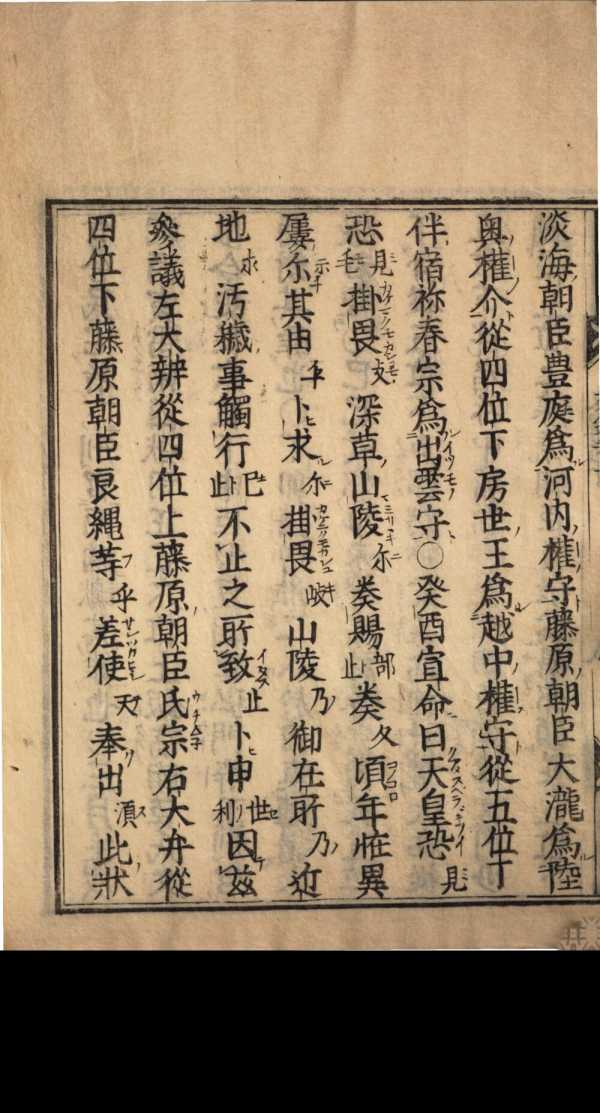 淡海朝臣豊庭爲河内權守藤原朝臣大瀧爲陸
奥權介從四位下房世王爲越中權守從五位下
伴宿祢春宗爲出雲守○癸酉宣命曰天皇恐見
恐見毛掛畏支深草山陵尓奏賜部止奏久頃年恠異
屢尓示其由乎卜求尓掛畏岐山陵乃御在所乃近
地水汚穢事觸行巳止不止之所致止卜申世利因茲
參議左大辨從四位上藤原朝臣氏宗右大弁從
四位下藤原朝臣良縄等乎差使天奉出須此狀